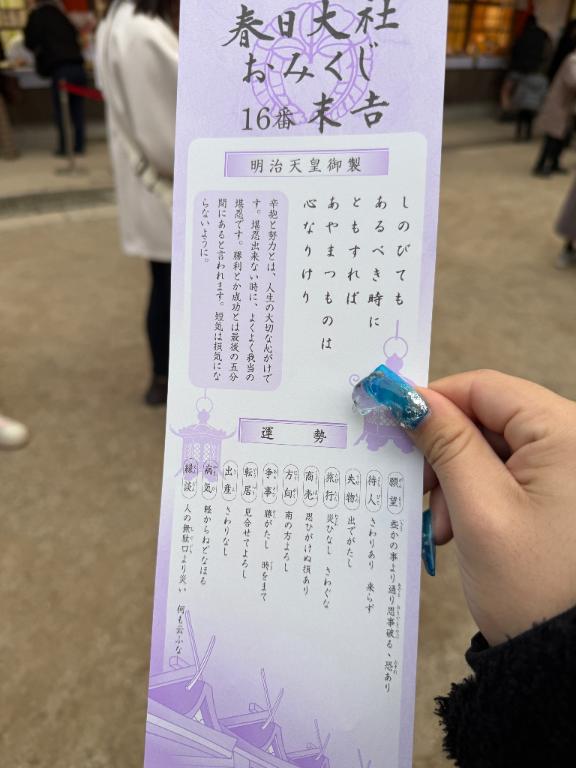 春日大社
おみくじ
16番 末吉
明治天皇御製
しのびても
あるべき時に
ともすれば
あやまつものは
心なりけり
辛抱と努力とは、人生の大切な心がけで
す。堪忍出来ない時に、よくよく我当の
堪忍です。勝利とか成功とは最後の五分
間にあると言われます。短気は損気にな
らないように。
運勢
願望 些かの事より通り思事破る、恐あり
待人 さわりあり 来らず
失物 出でがたし
旅行 災ひなし さわぐな
商売 思ひがけぬ損あり
方向 南の方よろし
争事 勝がたし 時をまて
転居 見合せてよろし
出産 さわりなし
病気 軽からねどなほる
縁談 人の無駄口より災い 何も云ふな